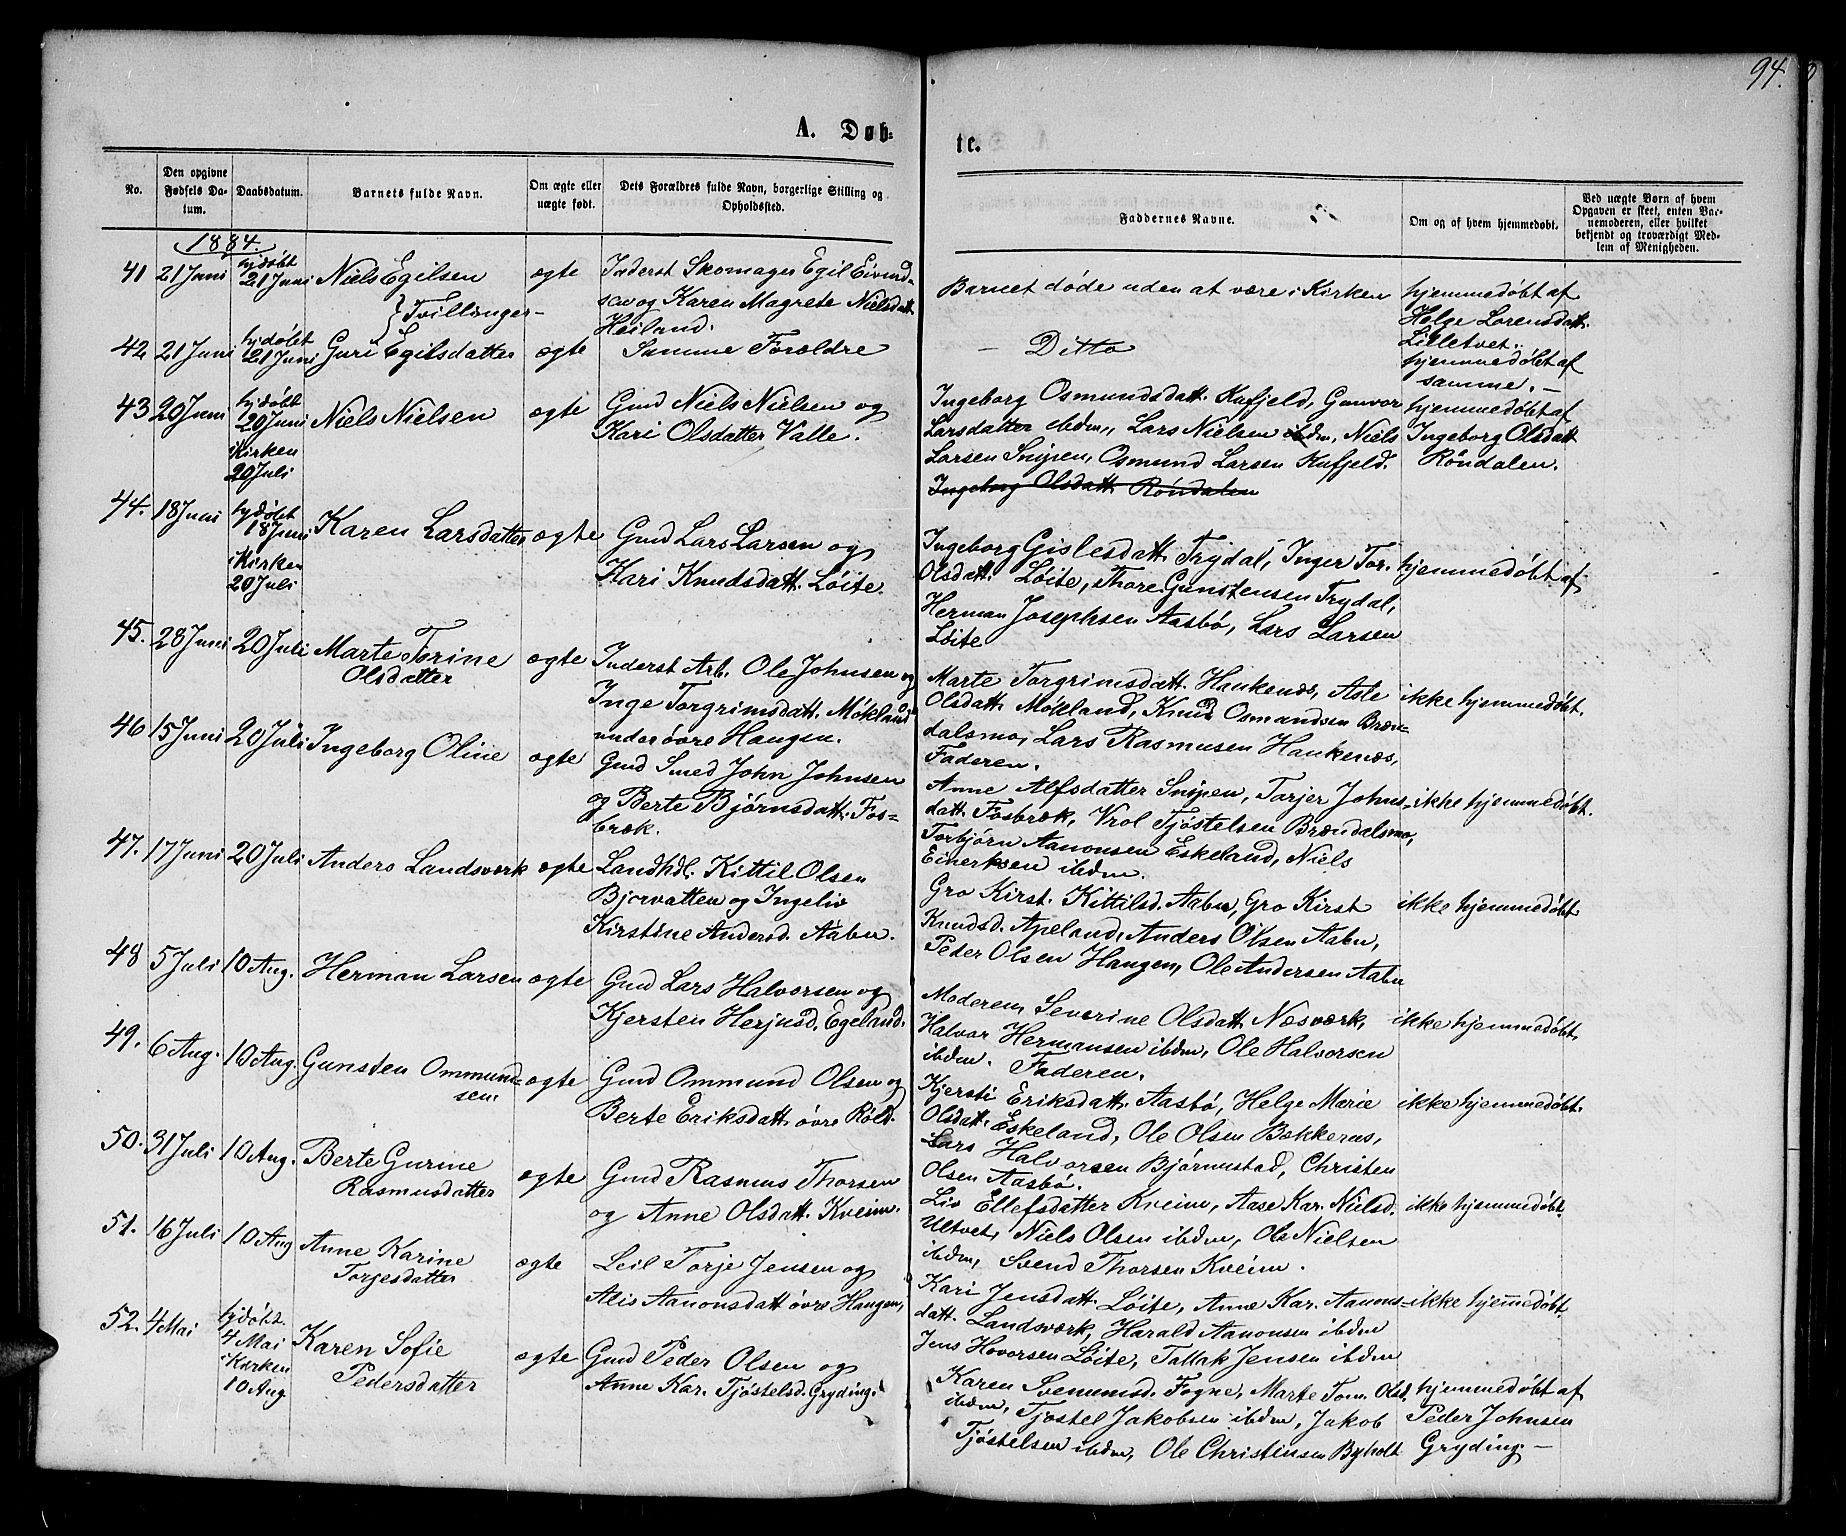 94.
A. Døb-
te.
No.
Den opgivne Fødsels Datum.
Daabsdatum.
Barnets fulde Navn.
Om ægte eller uægte født.
Dets Forældres fulde Navn, borgerlige Stilling og Opholdssted.
Faddernes Navne.
Om og af hvem hjemmedøbt.
Ved uægte Børn af hvem Opgaven er skeet, enten Barnemoderen, eller hvilket bekjendt og troværdigt Medlem af Menigheden.
1884.
41 21 Juni hjdøbt 21 Juni Niels Egilsen ægte Inderst Skomager Egil Eivind-
} Tvillinger
sen og Karen Magrete Nielsdatt.
Heiland.
Barnet døde uden at være i Kirken
hjemmedøbt af
Helge Lorensdatt.
Lilletvet.
42 21 Juni hjdøbt 21 Juni Guri Egilsdatter ægte Samme Forældre
- Ditto
hjemmedøbt af
samme. -
43 20 Juni hjdøbt 20 Juni i Kirken 20 Juli Niels Nielsen ægte Gmd Niels Nielsen og
Kari Olsdatter Valle.
Ingeborg Osmundsdatt. Kufjeld, Gunvor
Larsdatter ibdm, Lars Nielsen ibdm, Niels
Larsen Snipen, Osmund Larsen Kufjeld.
Ingeborg Olsdatt. Røndalen
hjemmedøbt af
Ingeborg Olsdatt
Røndalen.
44. 18 Juni hjdøbt 18 Juni i Kirken 20 Juli Karen Larsdatter ægte Gmd Lars Larsen og
Kari Knudsdatt. Løite.
Ingeborg Gislesdatt. Trydal, Inger Tor.
Olsdatt. Løite, Thore Gunstensen Trydal,
Herman Josephsen Aasbø, Lars Larsen
Løite
hjemmedøbt af
45. 28 Juni 20 Juli Marte Torine
Olsdatter
ægte Inderst Arb. Ole Johnsen og
Inge Torgrimsdatt. Møkland
under øvre Haugen.
Marte Torgrimsdatt. Haukenæs, Asle
Olsdatt. Møkland, Knud Osmundsen Bræn-
dalsmo, Lars Rasmusen Haukenæs,
Faderen.
ikke hjemmedøbt.
46 15 Juni 20 Juli Ingeborg Oline ægte Gmd Smed John Johnsen
og Berte Bjørnsdatt. Fos-
bræk.
Anne Alfsdatter Snipen, Torjer Johns-
datt. Fosbræk, Vrol Tjøstelsen Brændalsmo,
Torbjørn Aanonsen Eskeland, Niels
Einerksen ibdm.
ikke hjemmedøbt.
47. 17 Juni 20 Juli Anders Landsværk ægte Landhdl. Kittil Olsen
Bjorvatten og Ingeliv
Kirstine Andersd. Aabu.
Gro Kirst. Kittilsd. Aabu, Gro Kirst
Knudsd. Apeland, Anders Olsen Aabu,
Peder Olsen Haugen, Ole Andersen Aabu
ikke hjemmedøbt
48 5 Juli 10 Aug. Herman Larsen ægte Gmd Lars Halvorsen og
Kjersten Herjusd. Egeland.
Moderen, Severine Olsdatt. Næsværk,
Halvor Hermansen ibdm, Ole Halvorsen
ibdm. Faderen.
ikke hjemmedøbt.
49. 6 Aug. 10 Aug. Gunsten Ommund-
sen.
ægte Gmd Ommund Olsen og
Berte Eriksdatt. øvre Røld.
Kjersti Eriksdatt. Aasbø, Helge Marie
Olsdatt. Eskeland, Ole Olsen Bakkenæs,
Lars Halvorsen Bjørnustad, Christen
Olsen Aasbø.
ikke hjemmedøbt.
50. 31 Juli 10 Aug. Berte Gurine
Rasmusdatter
ægte Gmd Rasmus Thorsen
og Anne Olsdatt. Kveim.
Liv Ellefsdatter Kveim, Aase Kar. Nielsd.
Ultvet, Niels Olsen ibdm, Ole Nielsen
ibdm, Svend Thorsen Kveim.
ikke hjemmedøbt.
51. 16 Juli 10 Aug Anne Karine
Torjesdatter
ægte Leil Torje Jensen og
Alis Aanonsdatt øvre Haugen,
Kari Jensdatt. Løite, Anne Kar. Aanons-
datt. Landsværk, Harald Aanonsen ibdm
Jens Hovorsen Løite, Tallak Jensen ibdm
ikke hjemmedøbt.
52. 4 Mai hjdøbt. 4 Mai i Kirken 10 Aug Karen Sofie
Pedersdatter
ægte Gmd Peder Olsen og
Anne Kar. Tjøstelsd. Gryding.
Karen Svenumsd. Fogne, Marte Tom. Olsd.
ibdm, Tjøstel Jakobsen ibdm, Jakob
Tjøstelsen ibdm, Ole Christensen Byholt
hjemmedøbt af
Peder Johnsen
Gryding. -